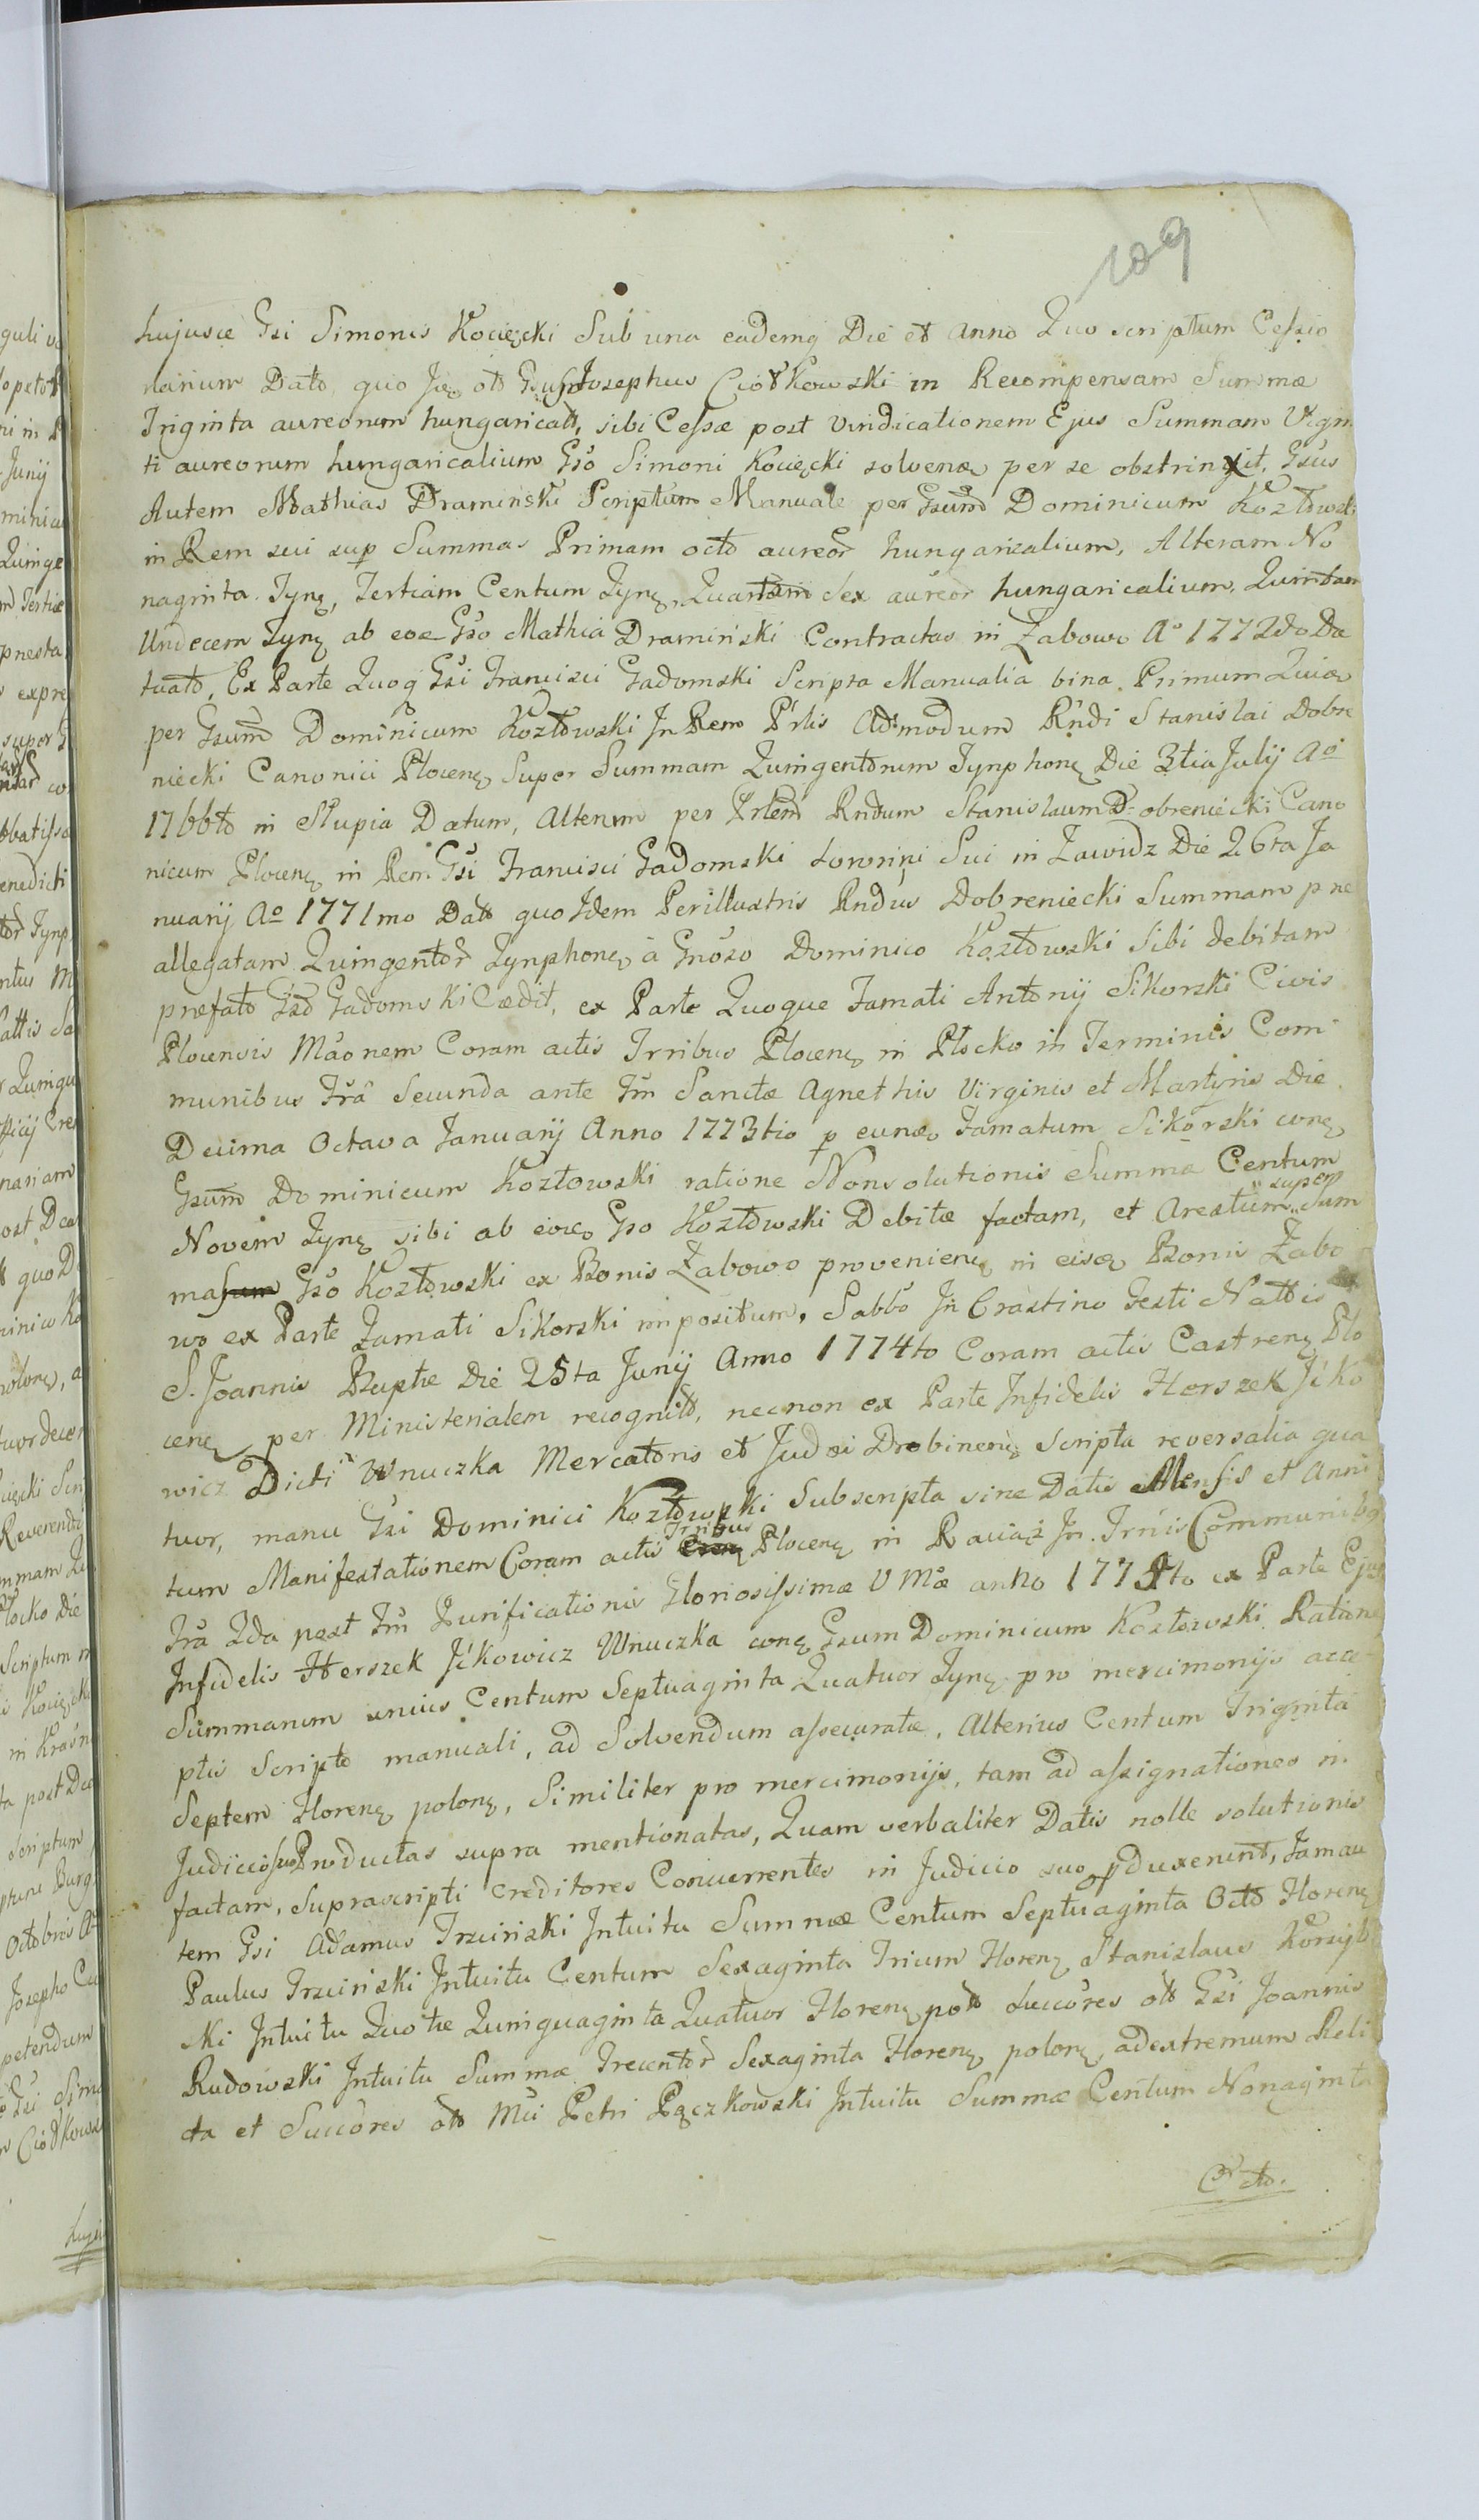 109
hujusce Gsi Simonis Kocięcki Sub una eademq Die et anno Quo scriptum Cessio
narium Dato, quo Josephus Ciołkowski in Recompensam Summæ
Triginta aureorum hungaricali, sibi Cessæ post Vindicationem Ejus Summam Vigin
ti aureorum hungaricalium Gso Simoni Kocięcki solvenę per se obstrinxit, Gsus
Autem Mathias Dramiński Scriptum Manuale per Gsum Dominicum Kozłowski
in Rem sui sup Summas Primam octo aureor hungaricalium, Alteram No
naginta Tynę, Tertiam Centum Tynę, Quartam Sex aureor hungaricalium, Quintam
Undecem Tynę ab eoę Gso Mathia Dramiński Contractas in Żabowo Ao 1772do Da
tuato, Ex Parte Quoq Gsi Francisci Gadomski Scripta Manualia bina Primum Quidę
per Gsum Dominicum Kozłowski In Rem Prlis Admodum Rndi Stanislai Dobre
niecki Canonici Plocenę Super Summam Quingentorum Tynphonę Die 3tia Julij Ao
1766to in Słupia Datum, Alterum per Prlem Rndum Stanislaum Dobreniecki Cano
nicum Plocenę in Rem Gsi Francisci Gadomski Sororini Sui in Zawidz Die 26ta Ja
nuarij Ao 1771mo Dato quo Idem Perillustris Rndus Dobreniecki Summam præ
allegatam Quingentor Tynphonę à Gnoso Dominico Kozłowski Sibi debitam
præfato Gso Gadomski Cædit, ex Parte Quoque Famati Antonij Sikorski Civis
Plocensis Mãonem Coram actis Trribus Plocenę in Płocko in Terminis Com
munibus Fra Secunda ante Fm Sanctæ Agnethis Virginis et Martyris Die
Decima Octava Januarij Anno 1773tio p eundę Famatum Sikorski conę
Gsum Dominicum Kozłowski ratione Nonsolutionis Summa Centum
Novem Tynę sibi ab eodę Gso Kozłowski Debitæ factam, et Arestum super Sum
ma Gso Kozłowski ex Bonis Żabowo provenienę in eisdę Bonis Żabo
wo ex Parte Famati Sikorski impositum, Sabbo In Crastino Festi Nattis
S. Joannis Baptæ Die 25ta Junij Anno 1774to Coram actis Castrenę Plo
cenę per Ministerialem recognito, necnon ex Parte Infidelis Herszek Jćko
wicz Dicti Wnuczka Mercatoris et Judæi Drobinenę Scripta reversalia qua
tuor, manu Gsi Dominici Kozłowski Subscripta sine Datis Mensis et Anni
tum Manifestationem Coram actis Trribus Plocenę in Raciąż In Trnis Communibq
Fra 2da post Fm Purificationis Gloriosissimæ V Mæ anno 1774to ex Parte Ejus
Infidelis Herszek Jćkowicz Wnuczka conę Gsum Dominicum Kozłowski Ratione
Summarum unius Centum Septuaginta Quatuor Tynę pro mercimonijs acce
ptis Scripto manuali, ad Solvendum assecuratæ, Alterius Centum Triginta
Septem Florenę polonę, Similiter pro mercimonijs, tam ad assignationes in
Judicio suo Productas supra mentionatas, Quam verbaliter Datis nolle solutionis
factam, Suprascripti Creditores Concurrentes in Judicio suo pduxerunt, Tamau
tem Gsi Adamus Trzciński Intuitu Summæ Centum Septuaginta Octo Florenę
Paulus Trzciński Intuitu Centum Sexaginta Trium Florenę Stanislaus Korzyb
ski Intuitu Quotæ Quinquaginta Quatuor Florenę polo Succores olo Gsi Joannis
Rudowski Intuitu Summæ Trecentor Sexaginta Florenę polonę, adextremum Reli
cta et Succores olo Mci Petri Pączkowski Intuitu Summæ Centum Nonaginta
Octo.